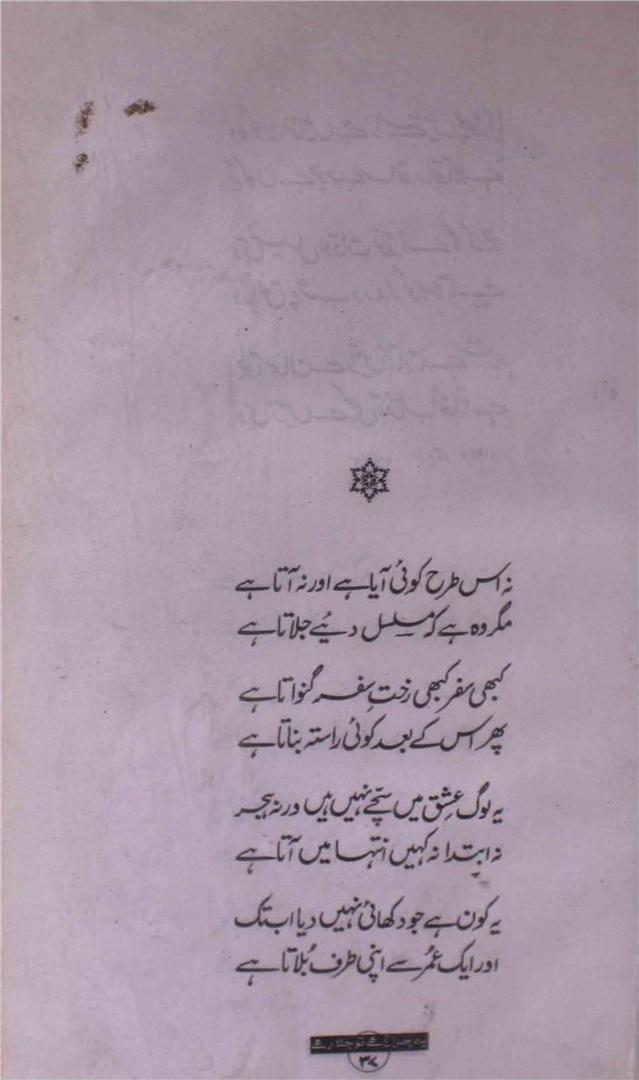 نہ اس طرح کوئی آیا ہے اور نہ آتا ہے
مگر وہ ہے کہ مسلسل دیئے جلاتا ہے
کبھی سفر کبھی رختِ سفر گنواتا ہے
پھر اس کے بعد کوئی راستہ بناتا ہے
یہ لوگ عشق میں سچّے نہیں ہیں ورنہ ہجر
نہ ابتدا نہ کہیں انتہا میں آتا ہے
یہ کون ہے جو دکھائی نہیں دیا اب تک
اور ایک عُمر سے اپنی طرف بُلاتا ہے
یہ چراغ ہے تو جلا رہے
۳۷